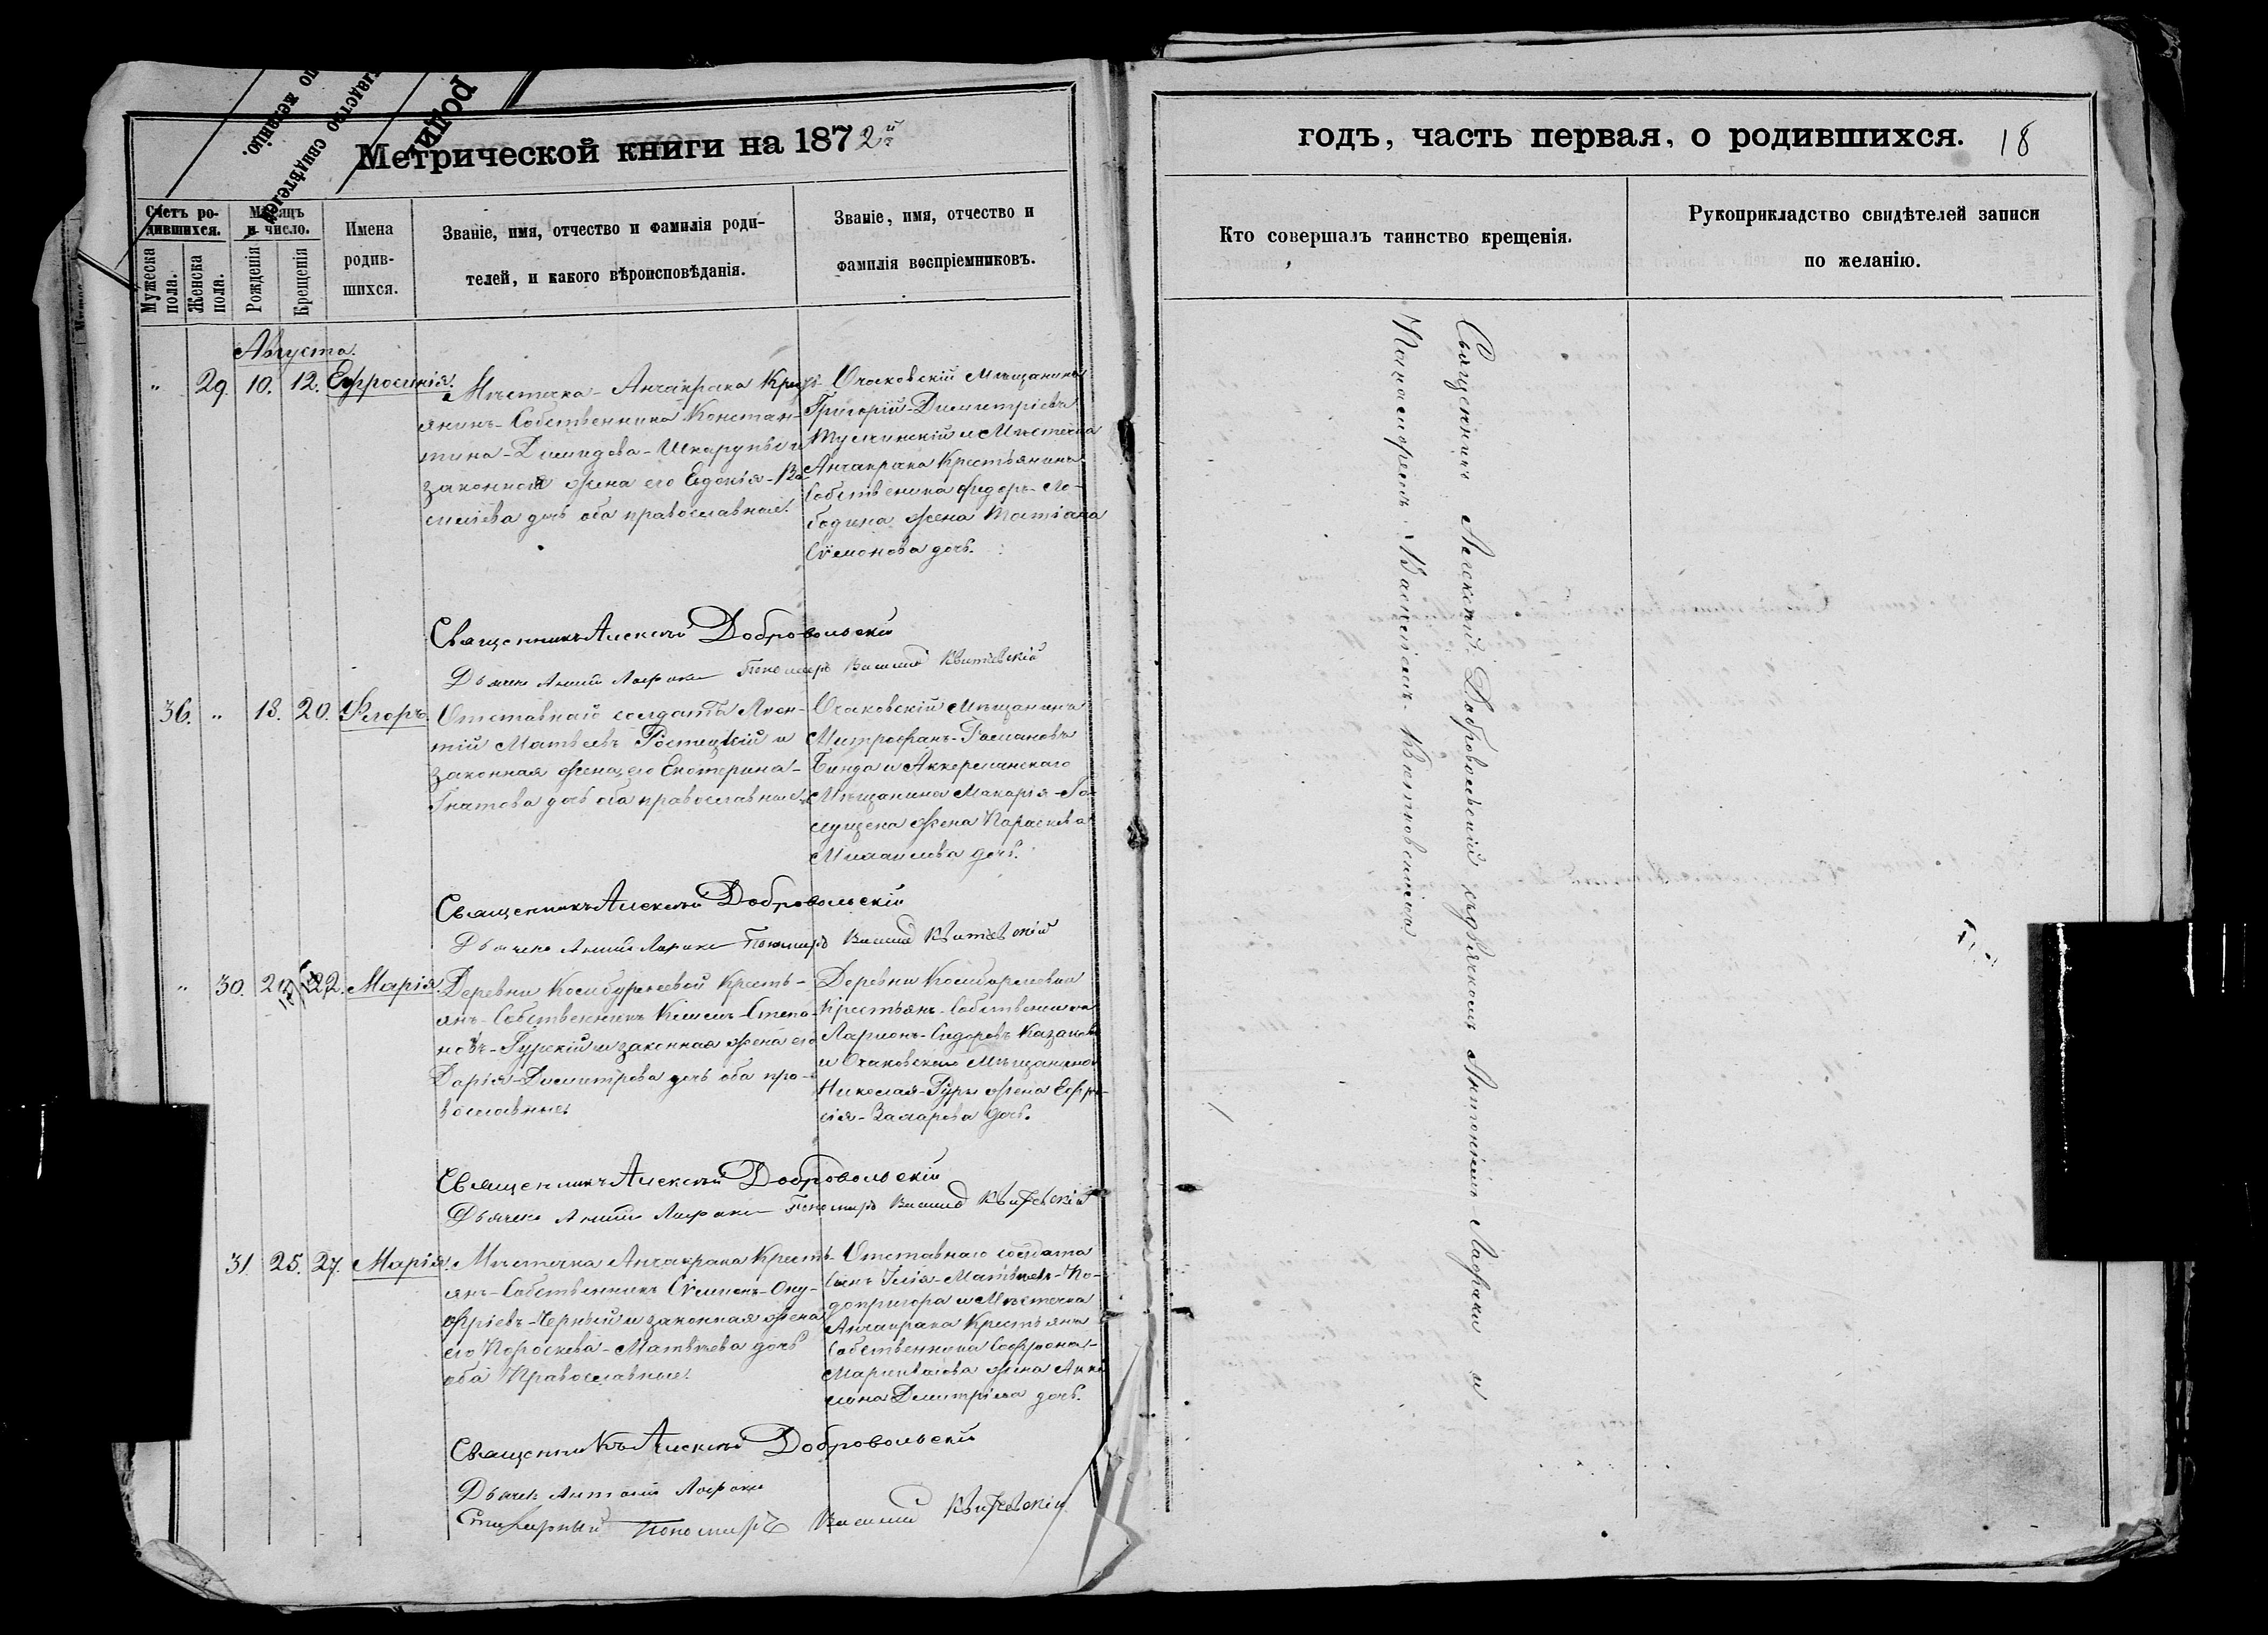 по желанію.
свидѣтелей
роди
Метрической книги на 1872й
Счетъ ро-
дившихся.
Мѣсяцъ
и число.
Мужеска
пола.
Женска
пола.
Рожденія
Крещенія
Имена
родив-
шихся.
Званіе, имя, отчество и фамилія роди-
телей, и какого вѣроисповѣданія.
Званіе, имя, отчество и
фамилія воспріемниковъ.
Августа.
„ 29. 10. 12. Ефросинія.
Мѣстечка - Анчакрака Крест-
янинъ - Собственника Констан-
тина - Демидова - Шкарупы и
законная жена его - Ва-
силіева дочь оба православные.
Очаковскій Мѣщанинъ
Григорій - Димитріевъ
и Мѣстечка
Анчакрака Крестьянина
Собственика Федоръ - Ло-
бодина жена Татіана
Сѵменова дочь.
Священникъ Алексѣй Добровольскій
Дьячекъ Антоній Лафаки Пономарь Василій Квитковскій
36. „ 18. 20. Флоръ.
Отставнаго солдатъ
Матвеевъ и
законная жена его Екатерина -
Гнатова дочь оба православные
Очаковскій Мѣщанинъ
Митрофанъ - Романовъ
Бинда и Аккерманскаго
Мѣщанина Макарія - Го-
лущена жена Параскева
Михаилова дочь.
Священникъ Алексѣй Добровольскій
Дьячекъ Антоній Лафаки Пономарь Василій Квитковскій
„ 30. 20. 22. Марія.
Деревни Козибуреевой Кресть-
янъ - Собственникъ - Степа-
новъ - Гурскій и законная жена его
Дарія - Димитрова дочь оба пра-
вославные.
Деревни
Крестьянъ - Собственника
Ларионъ - Сидоровъ Казаковъ
и Очаковскаго Мѣщанина
Николая - Гуры жена Ефро-
сія - Захарова дочь.
Священникъ Алексѣй Добровольскій
Дьячекъ Антоній Лафаки Пономарь Василій Квитковскій
31. 25. 27. Марія.
Мѣстечка Анчакрака Кресть-
янъ - Собственникъ Сѵменъ - Ону-
фріевъ - Черный и законная жена
его Пороскева - Матвѣева дочь
оба Православные.
Отставнаго солдата
Сынъ Илія - Матвѣевъ - По-
допригора и Мѣстечка
Анчакрака Крестьянъ
Собственника Софрона -
жена
Димитріева дочь.
Священникъ Алексѣй Добровольскій
Дьячекъ Антоній Лафаки
Пономарь Василій Квитковскій
годъ, часть первая, о родившихся. 18
Кто совершалъ таинство крещенія.
Рукоприкладство свидѣтелей записи
по желанію.
Священникъ Алексѣй Добровольскій съ дьячкомъ Антоніемъ Лафаки и
Панамаремъ Василіемъ Квитковскимъ